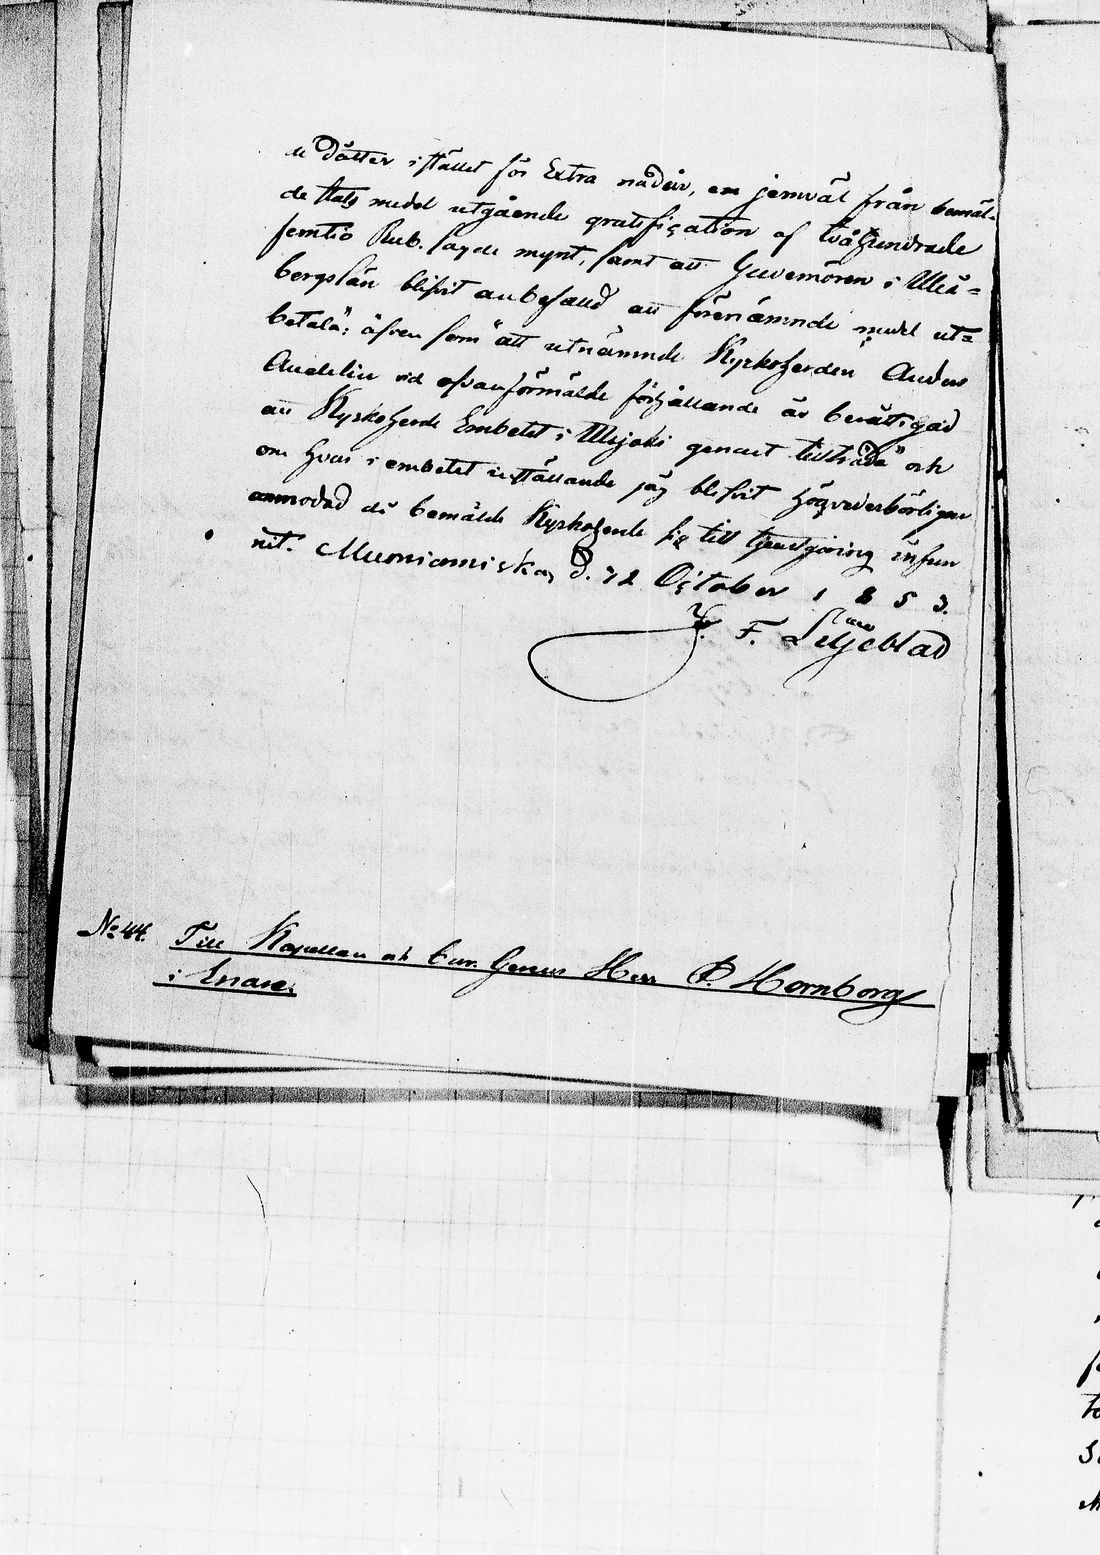 u Dötter istället för Extra nådår, en jemväl från bemäl-
de Stats medel utgående gratification af tvåhundrade
femtio Rub. sagde mynt, samt att Guvernören i Uleå=
borgs län blifvit anbefald att förenämnde medel ut=
betala; äfven som att utnämnde Kyrkoherden Anders
Andelin vid ofvanförmälde förhållande är berättigad
att Kyrkoherde Embetet i Utsjoki genast tillträda och
om hvars i embetet inställande jag blifvit högvederbörligen
anmodad då bemälde Kyrkoherde sig till tjenstgöring infun
nit. Muonionniska, d. 12 October 1853.
F. Liljeblad
No 44. Till Kapellan och Herr Hornborg
i Enare.